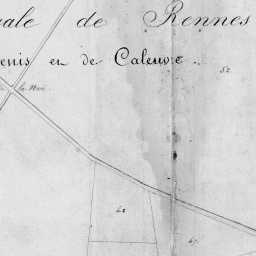 ale de Rennes
enis en de Caleuvre.
82
la Noë
48
47